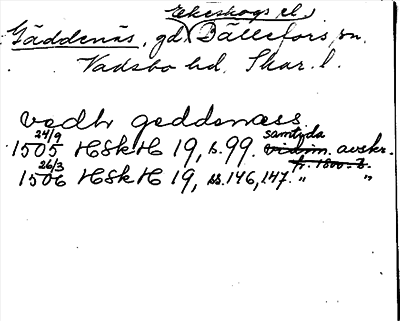 Ekeskogs el.
Gäddenäs, gd, Bällefors sn.
Vadsbo hd. Skar. l.
vedh geddenæss
24/9
1505 HSkH 19, s. 99. samtida avskr.
vidim. fr. 1500-t.
26/3
1506 HSkH 19, ss. 146, 147. " "